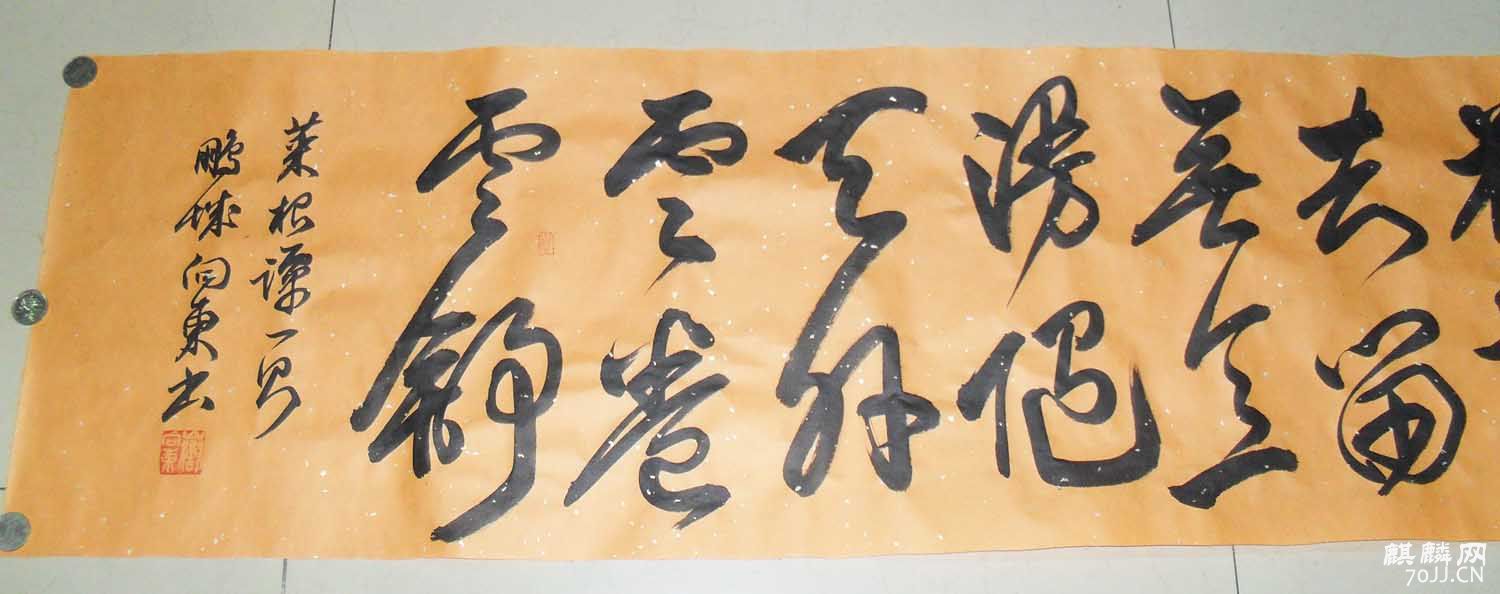 去留
無意
漫随
天外
雲卷
雲舒
菜根谭一则
鹏城向東书
麒麟网
70JJ.CN